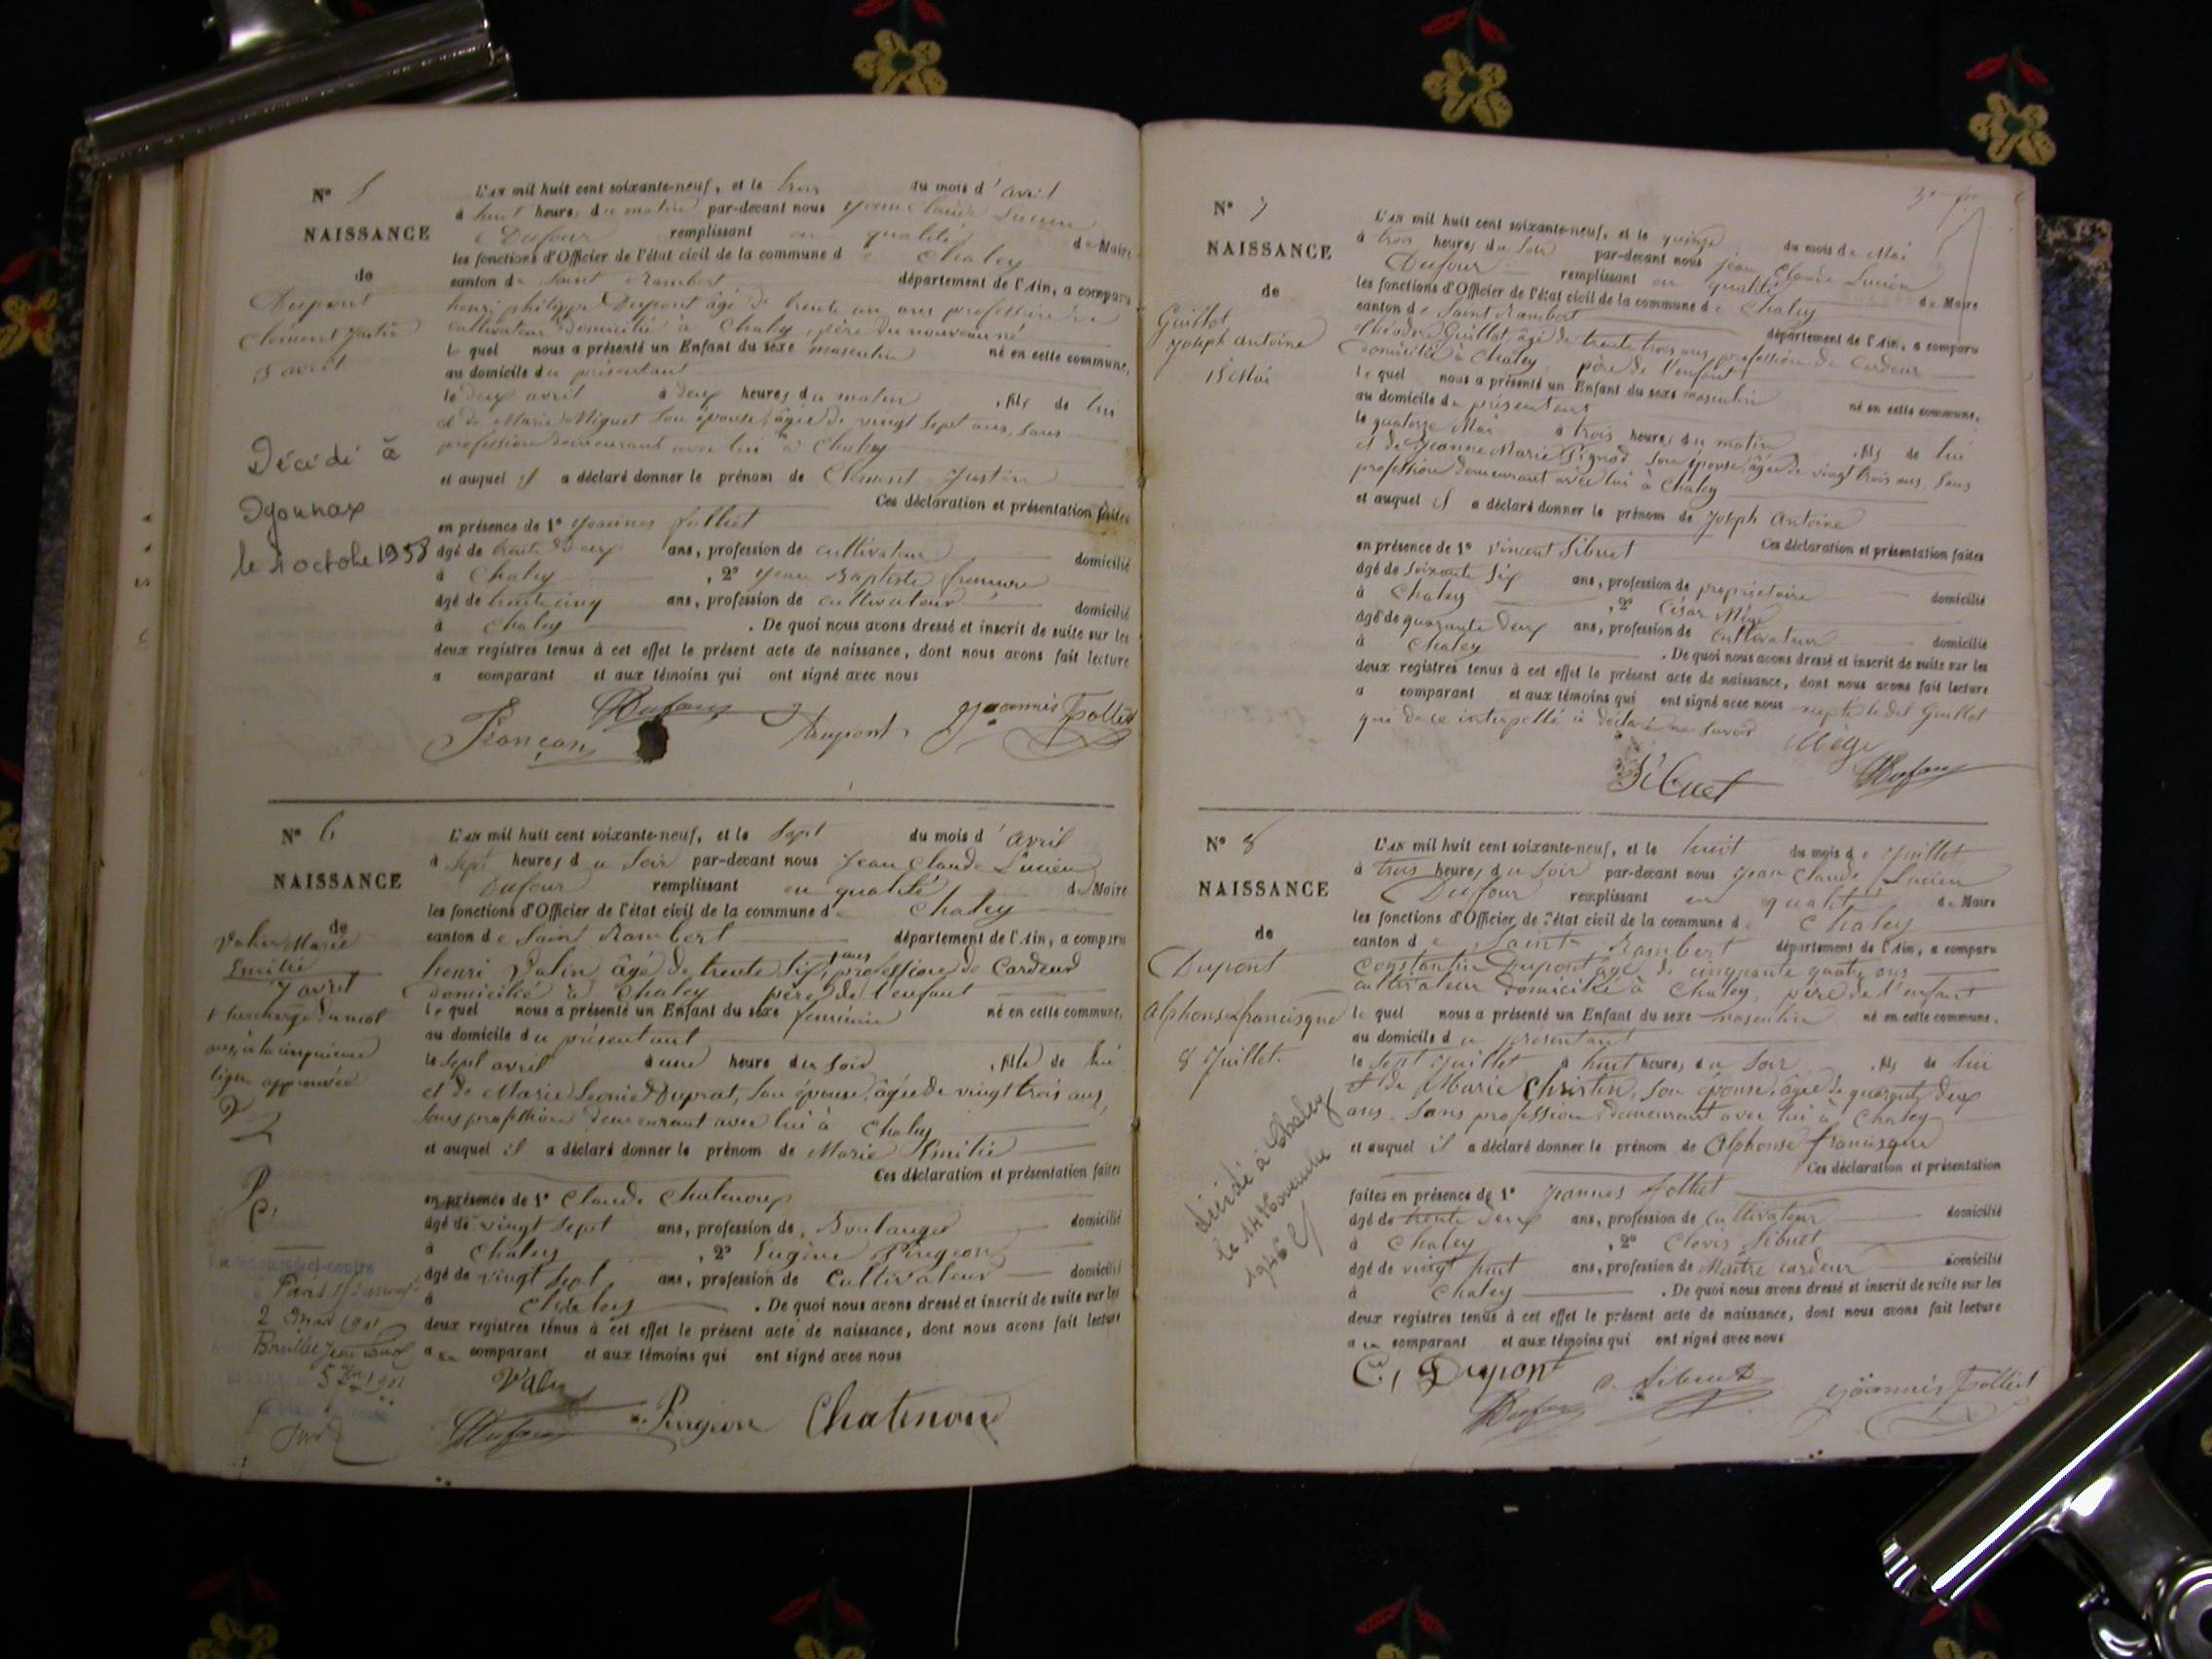 N° 5
NAISSANCE
de
Dupont
Clément Justin
3 avril
Décédé à
Oyonnax
le octobre 1958
L'AN mil huit cent soixante-neuf, et le trois du mois d'avril
à huit heures du matin par-devant nous Jean Claude Lucien
Dufour remplissant en qualité de Maire
les fonctions d'Officier de l'état civil de la commune de Chaley
canton de Saint Rambert département de l'Ain, a comparu
henri philippe Dupont âgé de trente un ans profession de
cultivateur domicilié à Chaley, père du nouveau né
lequel nous a présenté un Enfant du sexe masculin né en cette commune,
au domicile du présentant
le deux avril à deux heures du matin, fils de lui
et de Marie Miguet son épouse, âgée de vingt sept ans, sans
profession demeurant avec lui à Chaley
et auquel il a déclaré donner le prénom de Clément Justin
Ces déclaration et présentation faites
en présence de 1° Joannes folliet
âgé de trente deux ans, profession de cultivateur domicilié
à Chaley, 2° Jean Baptiste
âgé de trente cinq ans, profession de cultivateur domicilié
à Chaley. De quoi nous avons dressé et inscrit de suite sur les
deux registres tenus à cet effet le présent acte de naissance, dont nous avons fait lecture
a comparant et aux témoins qui ont signé avec nous
Dufour Dupont Joannès Folliet
N° 6
NAISSANCE
de
Valin Marie
Emilie
7 avril
ligne approuvée
Paris
L'AN mil huit cent soixante-neuf, et le Sept du mois d'avril
à Sept heures du Soir par-devant nous Jean Claude Lucien
Dufour remplissant en qualité de Maire
les fonctions d'Officier de l'état civil de la commune de Chaley
canton de Saint Rambert département de l'Ain, a comparu
henri Valin âgé de trente six ans, profession de Cardeur
domicilié à Chaley père de l'enfant
lequel nous a présenté un Enfant du sexe féminin né en cette commune,
au domicile du présentant
le Sept avril à une heure du Soir, fille de lui
et de Marie Leonie Duprat, son épouse, âgée de vingt trois ans,
sans profession demeurant avec lui à Chaley
et auquel il a déclaré donner le prénom de Marie Emilie
Ces déclaration et présentation faites
en présence de 1° Claude Chatenoux
âgé de vingt sept ans, profession de Boulanger domicilié
à Chaley, 2° Eugène Pingeon
âgé de vingt sept ans, profession de Cultivateur domicilié
à Chaley. De quoi nous avons dressé et inscrit de suite sur les
deux registres tenus à cet effet le présent acte de naissance, dont nous avons fait lecture
au comparant et aux témoins qui ont signé avec nous
Valin
Dufour Pingeon Chatenoux
N° 7
NAISSANCE
de
Guillot
Joseph Antoine
15 Mai
L'AN mil huit cent soixante-neuf, et le quinze du mois de Mai
à trois heures du Soir par-devant nous Jean Claude Lucien
Dufour remplissant en qualité de Maire
les fonctions d'Officier de l'état civil de la commune de Chaley
canton de Saint Rambert département de l'Ain, a comparu
Guillot, âgé de trente trois ans, profession de Cardeur
domicilié à Chaley, père de l'enfant
lequel nous a présenté un Enfant du sexe masculin né en cette commune,
au domicile du présentant
le quatorze Mai à trois heures du matin, fils de lui
et de Jeanne Marie Pignod son épouse, âgée de vingt trois ans, sans
profession demeurant avec lui à Chaley
et auquel il a déclaré donner le prénom de Joseph Antoine
Ces déclaration et présentation faites
en présence de 1° Vincent Sibuet
âgé de soixante six ans, profession de propriétaire domicilié
à Chaley, 2° César Mège
âgé de quarante deux ans, profession de Cultivateur domicilié
à Chaley. De quoi nous avons dressé et inscrit de suite sur les
deux registres tenus à cet effet le présent acte de naissance, dont nous avons fait lecture
a comparant et aux témoins qui ont signé avec nous excepté le dit Guillot
qui de ce interpellé a déclaré ne savoir
Mège
Sibuet Dufour
N° 8
NAISSANCE
de
Dupont
Alphonse francisque
8 Juillet
Décédé à Chaley
le 14 Novembre
1946
L'AN mil huit cent soixante-neuf, et le huit du mois de Juillet
à trois heures du Soir par-devant nous Jean Claude Lucien
Dufour remplissant en qualité de Maire
les fonctions d'Officier de l'état civil de la commune de Chaley
canton de Saint Rambert département de l'Ain, a comparu
Constantin Dupont âgé de cinquante quatre ans
cultivateur domicilié à Chaley, père de l'enfant
lequel nous a présenté un Enfant du sexe masculin né en cette commune,
au domicile du présentant
le Sept Juillet à huit heures du Soir, fils de lui
et de Marie Christin, son épouse, âgée de quarante deux
ans, sans profession, demeurant avec lui à Chaley
et auquel il a déclaré donner le prénom de Alphonse francisque
Ces déclaration et présentation
faites en présence de 1° Joannes folliet
âgé de trente deux ans, profession de cultivateur domicilié
à Chaley, 2° Clovis Sibuet
âgé de vingt huit ans, profession de Maître cardeur domicilié
à Chaley. De quoi nous avons dressé et inscrit de suite sur les
deux registres tenus à cet effet le présent acte de naissance, dont nous avons fait lecture
au comparant et aux témoins qui ont signé avec nous
C, Dupont
Dufour Sibuet Joannès Folliet